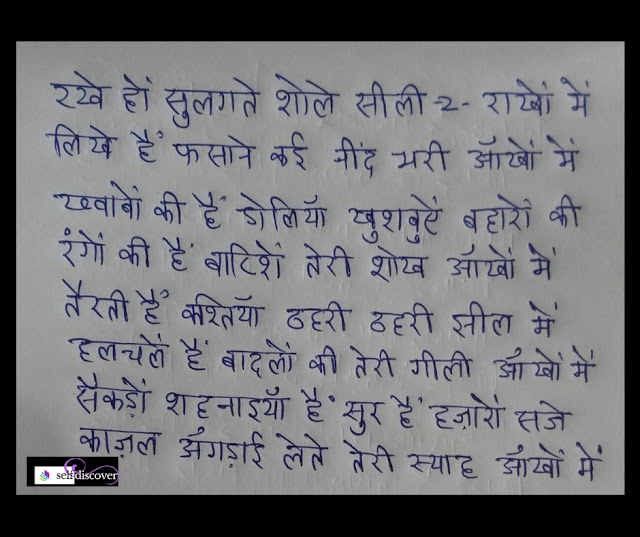 रखे हों सुलगते शोले सीली -2- राखों में
लिखे हैं फसाने कई नींद भरी आँखों में
ख्वाबों की हैं डोलियाँ खुशबुएें बहारों की
रंगों की हैं बारिशें तेरी शोख आँखों में
तैरती हैं कश्तियाँ ठहरी ठहरी झील में
हलचलें हैं बादलों की तेरी गीली आँखों में
सैकड़ों शहनाइयाँ हैं सुर हैं हज़ारों सजे
काज़ल अँगड़ाई लेते तेरी स्याह आँखों में
selfdiscover